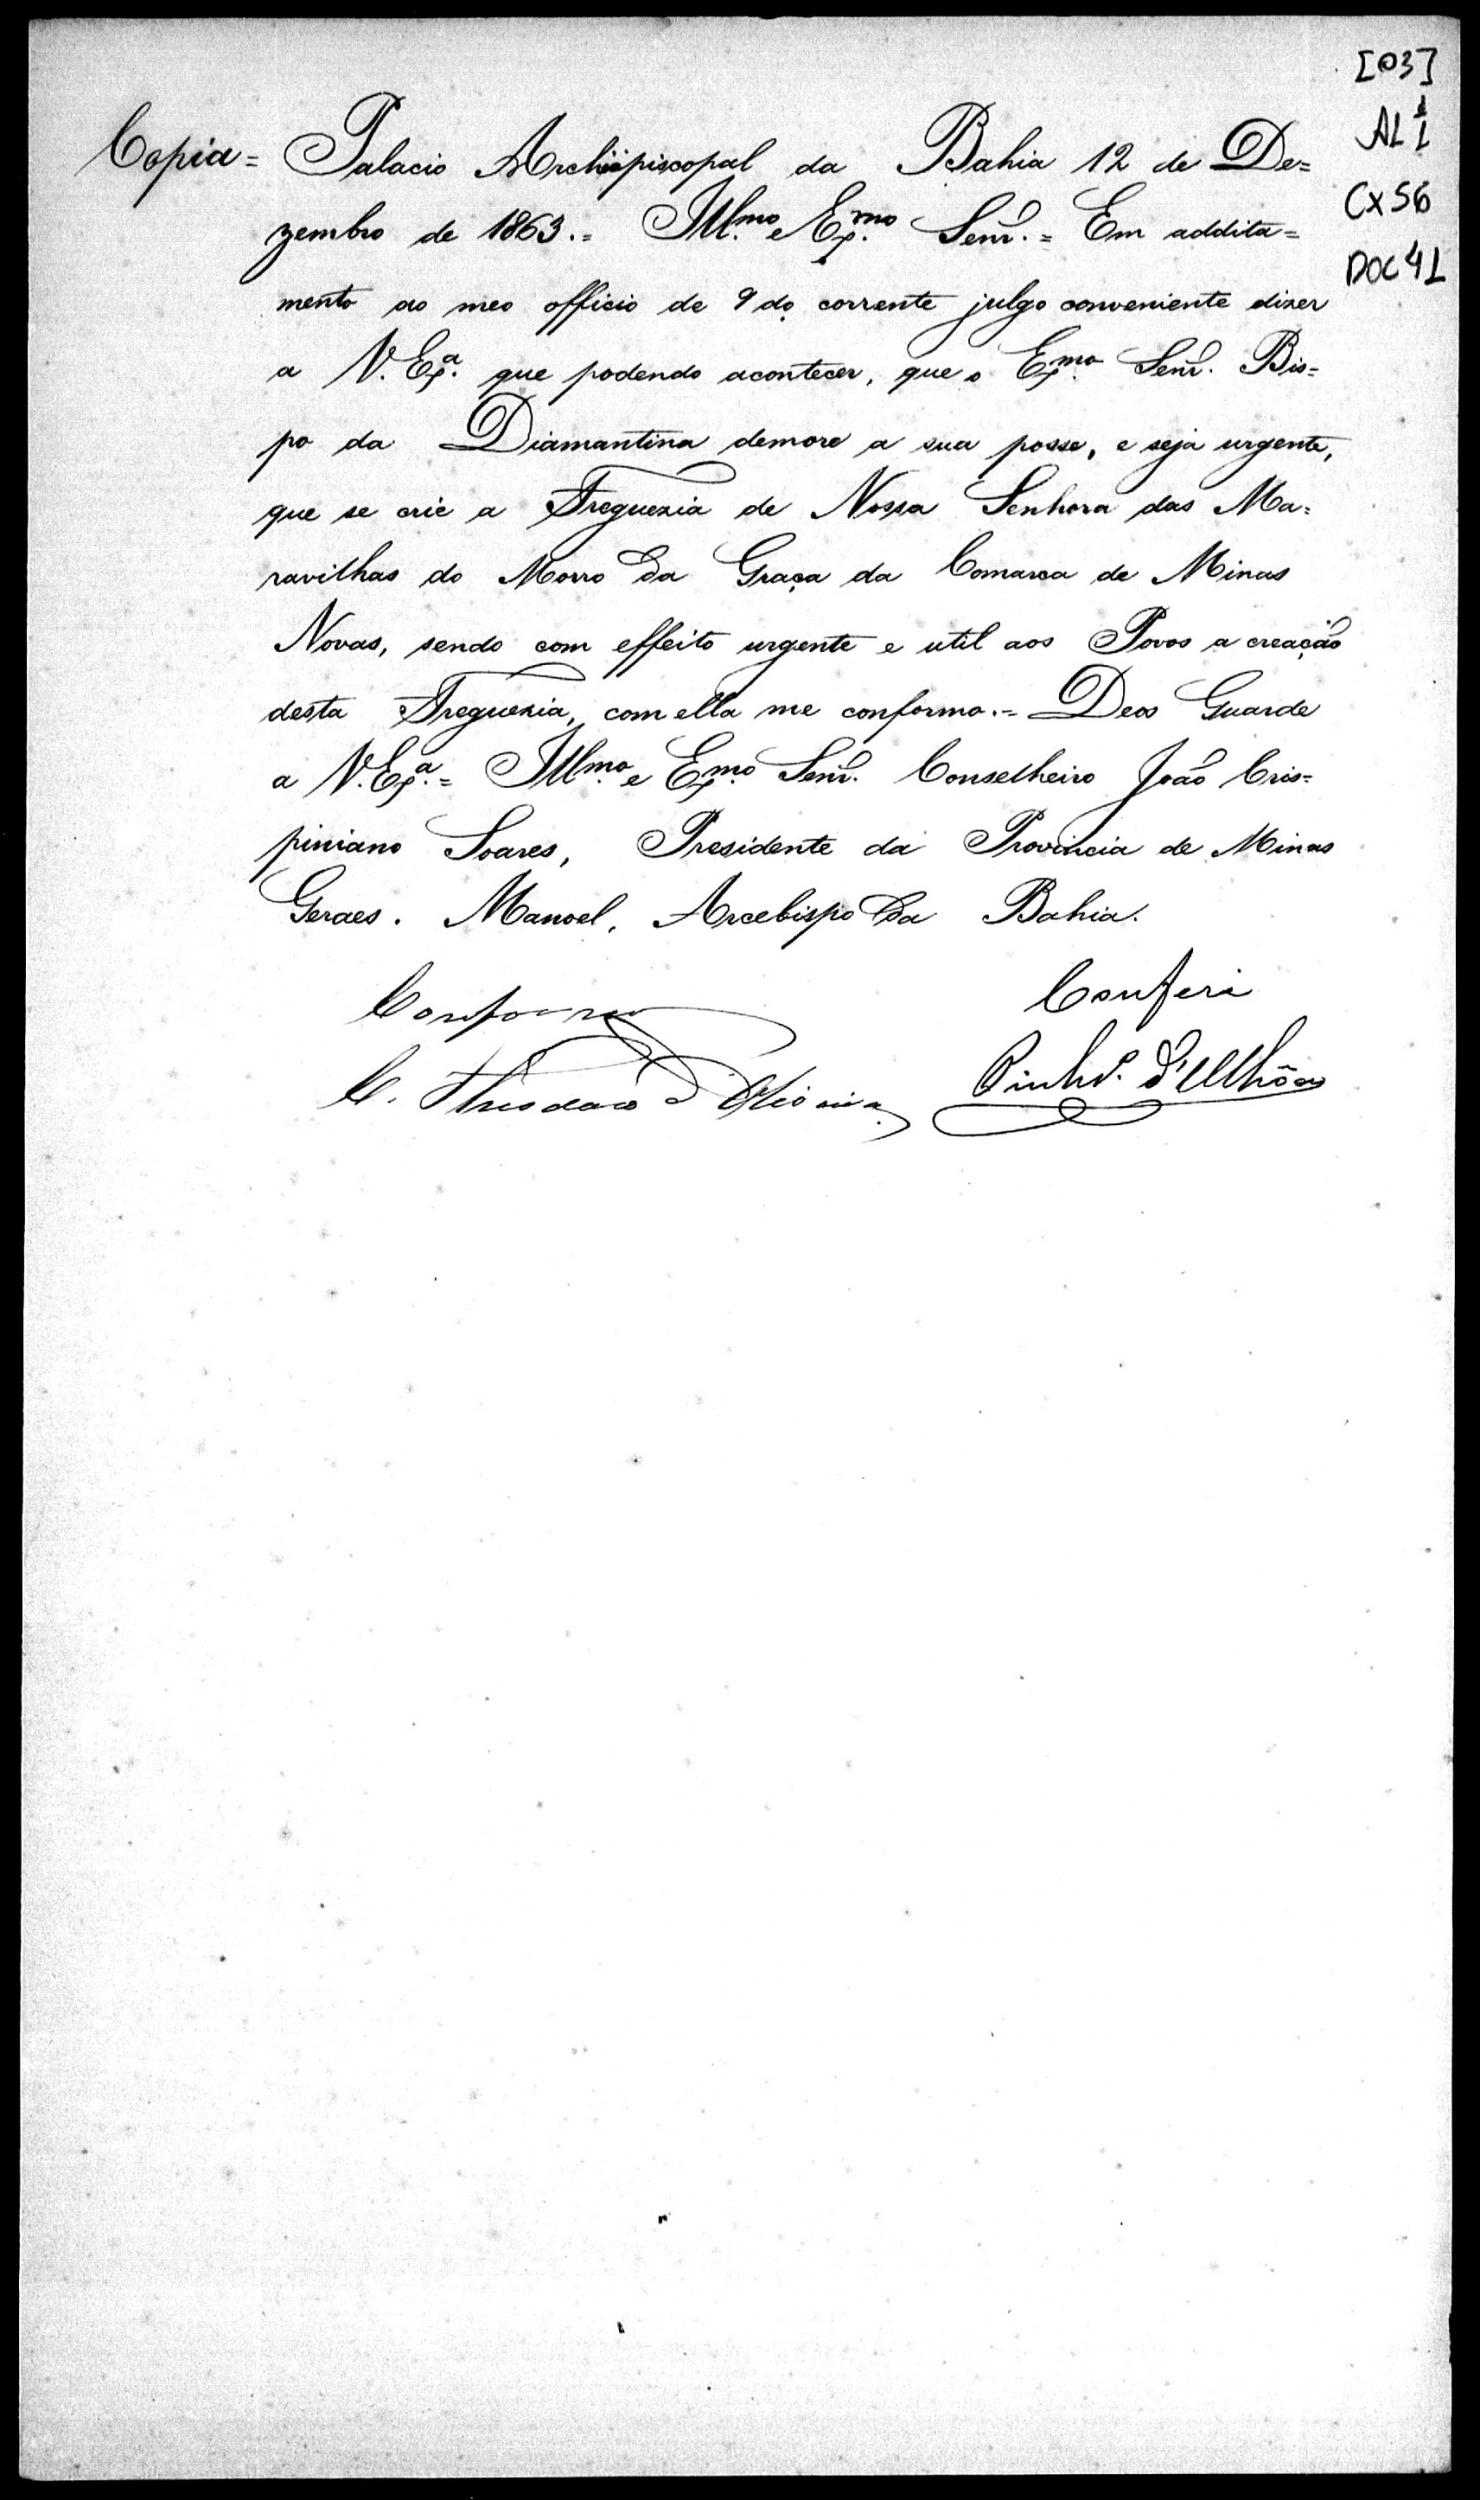 [03]
AL 1
1
CX 56
DOC 41
Copia = Palacio Archiepiscopal da Bahia 12 de De=
zembro de 1863.= Ill.mo e Ex.mo Senr. = Em addita=
mento ao meo officio de 9 do corrente julgo conveniente dizer
a V. Ex.a que podendo acontecer, que o Ex.mo Senr. Bis=
po da Diamantina demore a sua posse, e seja urgente,
que se crie a Freguezia de Nossa Senhora das Ma=
ravilhas do Morro da Graça da Comarca de Minas
Novas, sendo com effeito urgente e util aos Povos a creação
desta Freguezia, com ella me conformo.= Deos Guarde
a V. Ex.a = Ill.mo e Ex.mo Senr. Conselheiro João Cris=
piniano Soares, Presidente da Provincia de Minas
Geraes. Manoel, Arcebispo da Bahia.
Conferi
Conforme
Pinhr.o d'Ulhôa
C. Theodoro d'Oliveira